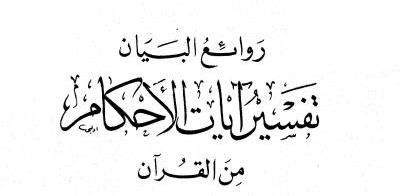 رَوَائِعُ البَيَان
تَفْسِيرُ آيَاتِ الأَحْكَامِ
مِنَ القُرآن